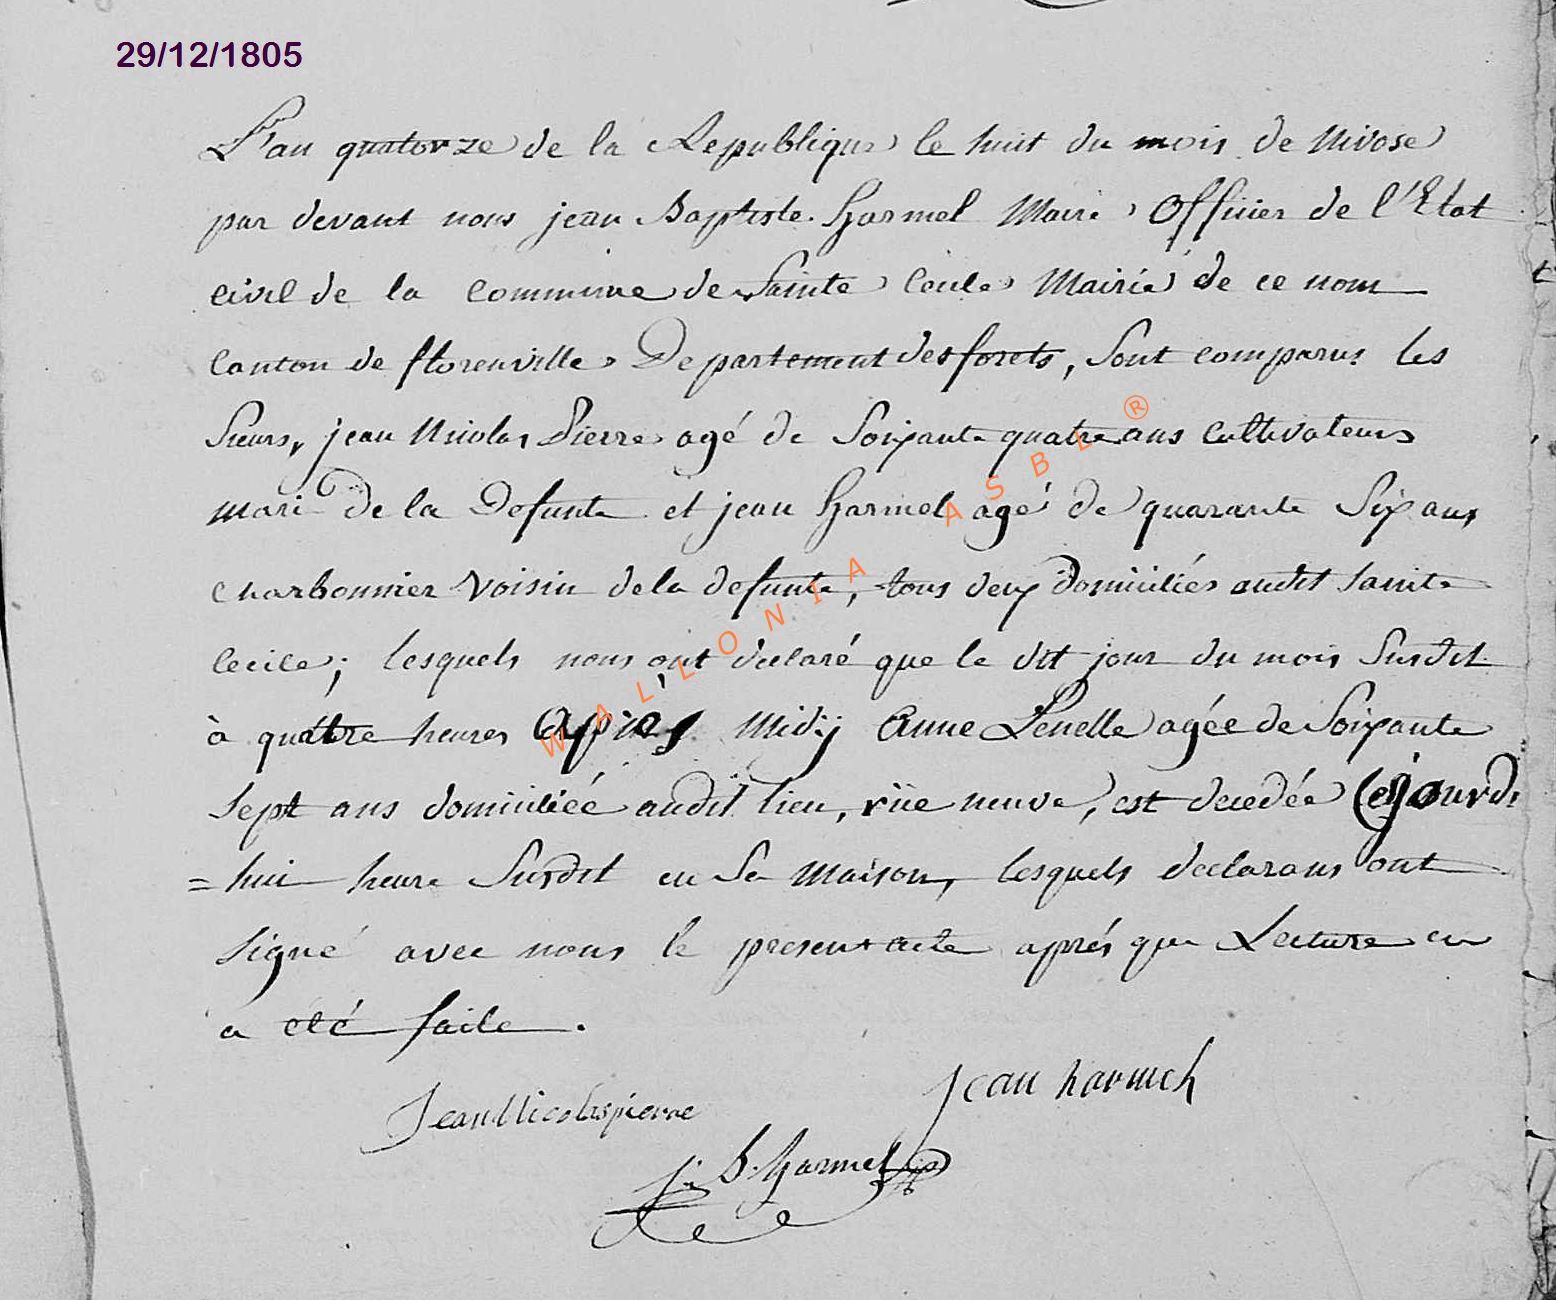 29/12/1805
L'an quatorze de la Republique le huit du mois de Nivose
par devant nous jean Baptiste Harmel Maire Officier de l'Etat
civil de la commune de Sainte Cecile Mairie de ce nom
Canton de florenville Departement des forets, Sont comparus les
Sieurs, jean Nicolas Pierre agé de Soixante quatre ans cultivateurs
mari de la Defunte et jean Harmel agé de quarante Six ans
charbonnier voisin de la defunte, tous deux domiciliés audit Sainte
Cecile; lesquels nous ont declaré que le dit jour du mois Susdit
à quatre heures Après Midÿ Anne Penelle agée de Soixante
Sept ans domiciliée audit lieu, rüe neuve, est decedée Cejourd
=hui heure Susdit en Sa Maison, lesquels declarans ont
Signé avec nous le present acte aprés que Lecture en
a eté faite.
Jean Nicolas pierre
Jean harmel
j. B. Harmel
WALLONIA ASBL ®